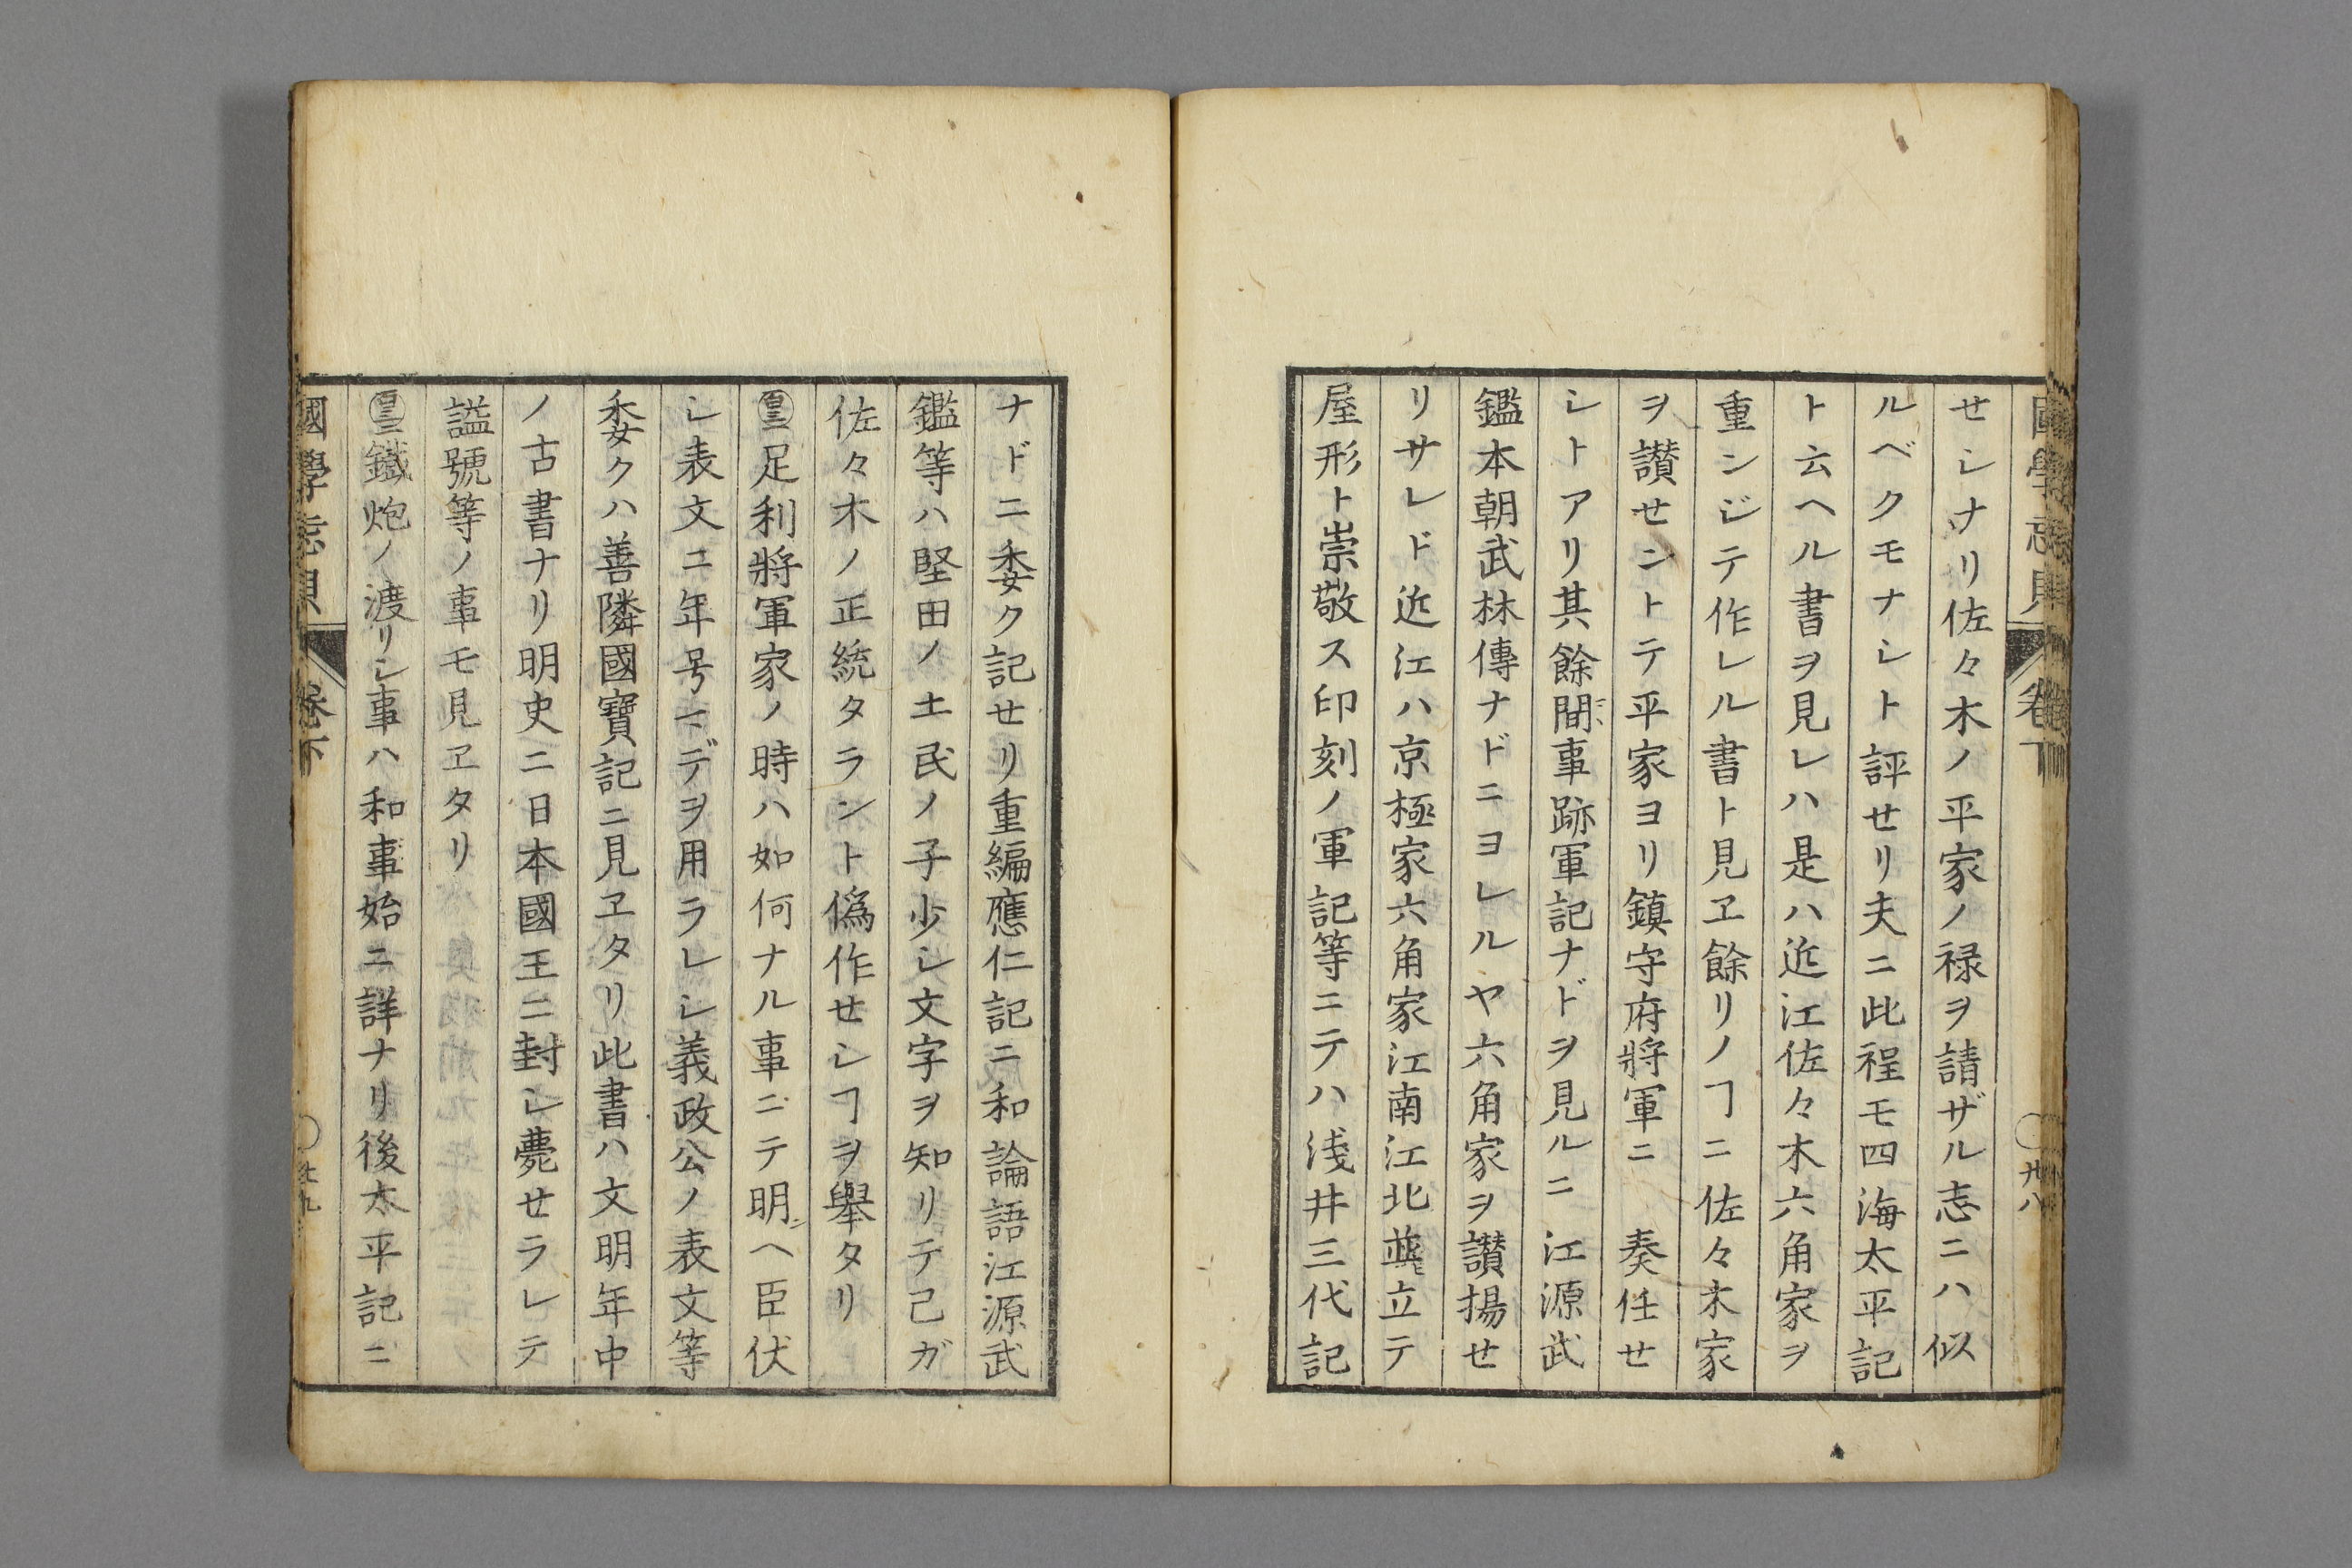 國學忘貝
卷下
〇廿八
せシナリ佐々木ノ平家ノ禄ヲ請ザル志ニハ似
ルベクモナシト評せリ夫ニ此程モ四海太平記
ト云ヘル書ヲ見レハ是ハ近江佐々木六角家ヲ
重ンジテ作レル書ト見ヱ餘リノヿニ佐々木家
ヲ讃せントテ平家ヨリ鎮守府將軍ニ 奏任せ
シトアリ其餘間事跡軍記ナドヲ見ルニ江源武
鑑本朝武林傳ナドニヨレルヤ六角家ヲ讃揚せ
リサレド近江ハ京極家六角家江南江北並ヒ立テ
屋形ト崇敬ス印刻ノ軍記等ニテハ浅井三代記
ナドニ委ク記せリ重編應仁記ニ和論語江源武
鑑等ハ堅田ノ土民ノ子少シ文字ヲ知リテ己ガ
佐々木ノ正統タラント偽作せシヿヲ擧タリ
足利將軍家ノ時ハ如何ナル事ニテ明ヘ臣伏
シ表文ニ年号マデヲ用ラレシ義政公ノ表文等
委クハ善隣國寶記ニ見ヱタリ此書ハ文明年中
ノ古書ナリ明史ニ日本國王ニ封シ薨せラレテ
謚號等ノ事モ見ヱタリ
鐵炮ノ渡リシ事ハ和事始ニ詳ナリ後太平記ニ
國學忘貝
卷下
〇廿九